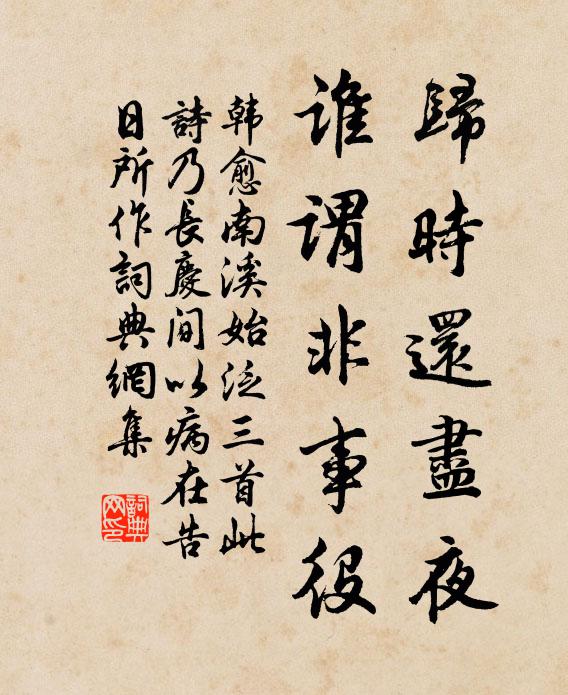 歸時還盡夜
誰謂非事役
韩愈南溪始泛三首此
詩乃長慶间以病在告
日所作詞典網集
詞典
网印